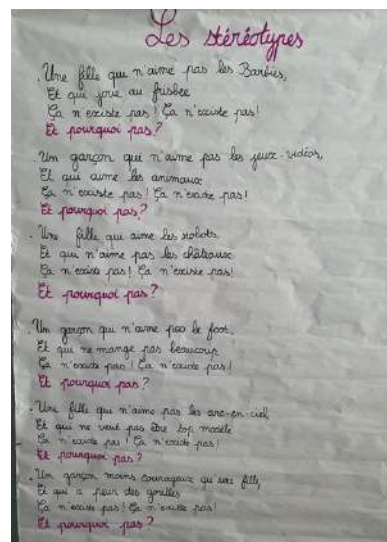 Les stéréotypes
. Une fille qui n'aime pas les Barbies,
Et qui joue au frisbee
Ça n'existe pas ! Ça n'existe pas !
Et pourquoi pas ?
. Un garçon qui n'aime pas les jeux-vidéos,
Et qui aime les animaux
Ça n'existe pas ! Ça n'existe pas !
Et pourquoi pas ?
. Une fille qui aime les robots
Et qui n'aime pas les châteaux
Ça n'existe pas ! Ça n'existe pas !
Et pourquoi pas ?
. Un garçon qui n'aime pas le foot,
Et qui ne mange pas beaucoup
Ça n'existe pas ! Ça n'existe pas !
Et pourquoi pas ?
. Une fille qui n'aime pas les arc-en-ciel
Et qui ne veut pas être top modèle
Ça n'existe pas ! Ça n'existe pas !
Et pourquoi pas ?
. Un garçon moins courageux qu'une fille,
Et qui a peur des gorilles
Ça n'existe pas ! Ça n'existe pas !
Et pourquoi pas ?